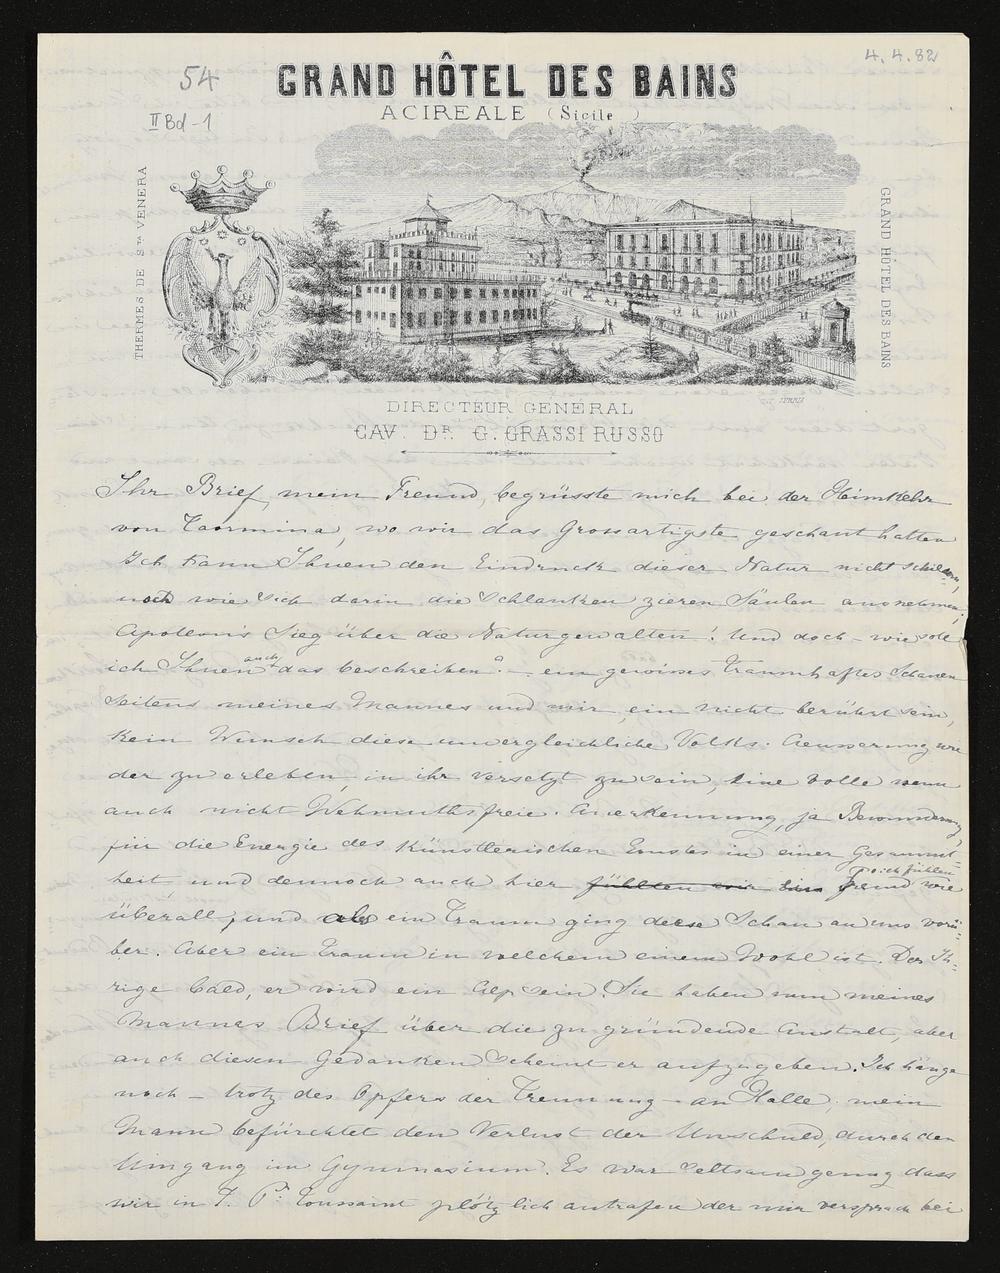 4.4.82
54
II Bd - 1
GRAND HÔTEL DES BAINS
ACIREALE (Sicile)
THERMES DE Sta VENERA
GRAND HÔTEL DES BAINS
DIRECTEUR GENERAL
CAV. Dr. G. GRASSI RUSSO
Ihr Brief, mein Freund, begrüsste mich bei der Heimkehr
von Taormina, wo wir das Grossartigste geschaut hatten
Ich kann Ihnen den Eindruck dieser Natur nicht schildern,
noch wie sich darin die schlanken zieren Säulen ausnehmen;
Apollon's Sieg über die Naturgewalten! Und doch - wie soll
ich Ihnen auch das beschreiben? - ein gewisses traumhaftes Schauen
Seitens meines Mannes und mir, ein nicht berührt sein,
kein Wunsch diese unvergleichliche Volks-Aeusserung wie
der zu erleben, in ihr versetzt zu sein, Eine volle wenn
auch nicht Wehmuthsfreie Anerkennung, ja Bewunderung,
für die Energie des künstlerischen Ernstes in einer Gesammt=
heit und dennoch auch hier fühlten wir uns fremd wie
überall, und als ein Traum ging diese Schau an uns vorü=
ber. Aber ein Traum in welchem einem Wohl ist. Der Ih=
rige bald, er wird ein Alp sein! Sie haben nun meines
Mannes Brief über die zu gründende Anstalt, aber
auch diesen Gedanken scheint er aufzugeben. Ich hänge
noch - trotz des Opfers der Trennung - an Halle; mein
Mann befürchtet den Verlust der Unschuld, durch den
Umgang im Gymnasium. Es war seltsam genug dass
wir in T. Pr. Toussaint plötzlich antrafen der mir versprach bei